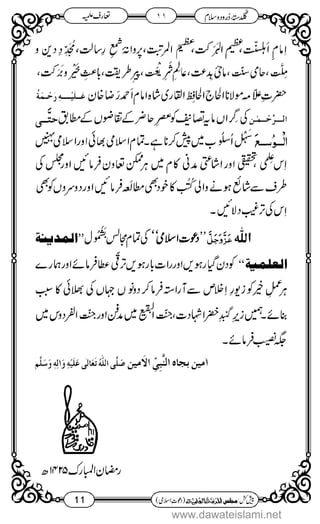 گلدستۂ درود و سلام ۱۱ تعارف علمیہ
امامِ اَہلسنّت، عظیم البَرَکت، عظیم المرتبت، پروانۂ شمعِ رِسالت، مُجَدِّدِ دین و
مِلَّت، حامیٔ سنّت، ماحیٔ بدعت، عالِمِ شَرِیْعَت، پیرِ طریقت، باعثِ خَیْر و بَرَکت،
حضرتِ علاّمہ مولانا الحاج الحافِظ القاری شاہ امام اَحمد رَضا خان عَلَیْہِ رَحْمَۃُ
الرَّحْمٰن کی گِراں مایہ تصانیف کو عصرِ حاضر کے تقاضوں کے مطابق حتَّی
الْوَسْع سَہْل اُسْلُوب میں پیش کرنا ہے۔ تمام اسلامی بھائی اور اسلامی بہنیں
اِس عِلمی، تحقیقی اور اشاعتی مدنی کام میں ہر ممکن تعاون فرمائیں اور مجلس کی
طرف سے شائع ہونے والی کُتُب کا خود بھی مطالَعہ فرمائیں اور دوسروں کو بھی
اِس کی ترغیب دلائیں ۔
اللہ عَزَّوَجَلَّ ’’دعوتِ اسلامی‘‘ کی تمام مجالس بَشُمُول ’’المدینۃ
العلمیۃ‘‘ کو دن گیارہویں اور رات بارہویں ترقّی عطا فرمائے اور ہمارے
ہر عملِ خیر کو زیورِ اِخلاص سے آراستہ فرما کر دونوں جہاں کی بھلائی کا سبب
بنائے۔ ہمیں زیرِ گنبدِ خضرا شہادت، جنّت البقیع میں مدفن اور جنّت الفردوس میں
جگہ نصیب فرمائے ۔
امین بجاہ النَّبِیِّ الامین صَلَّی اللہُ تَعَالٰی عَلَیْہِ وَاٰلِہٖ وَسَلَّم
رمضان المبارک ۱۴۲۵ھ
11 (دعوتِ اسلامی)
www.dawateislami.net